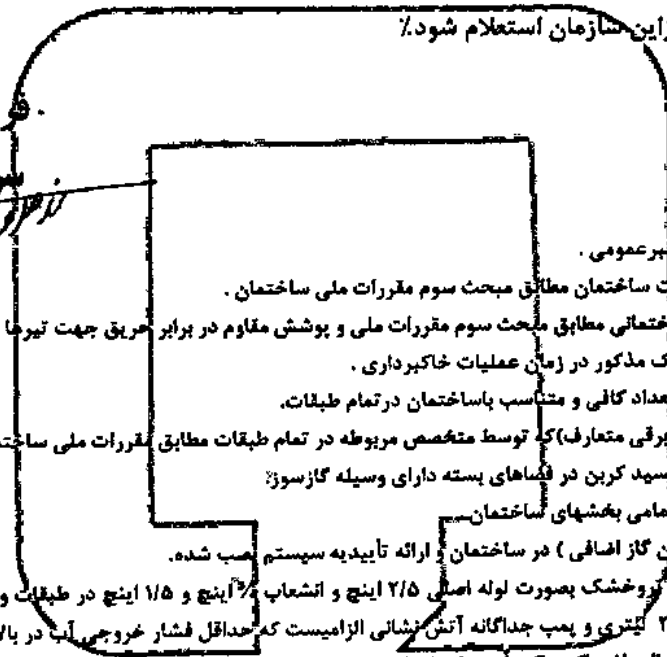 این سازمان استعلام شود٪
عمومی .
ساختمان مطابق مبحث سوم مقررات ملی ساختمان .
مطابق مبحث سوم مقررات ملی و پوشش مقاوم در برابر حریق جهت تیرها
مذکور در زمان عملیات خاکبرداری .
کافی و متناسب باساختمان درتمام طبقات.
برقی متعارف)که توسط متخصص مربوطه در تمام طبقات مطابق مقررات ملی
کربن در فضاهای بسته دارای وسیله گازسوز
بخشهای ساختمان
گاز اضافی ) در ساختمان و ارائه تأییدیه سیستم نصب شده.
بصورت لوله اصلی ۲/۵ اینچ و انشعاب اینچ و ۱/۵ اینچ در طبقات و
لیتری و پمپ جداگانه آتش نشانی الزامیست که حداقل فشار خروجی آب در